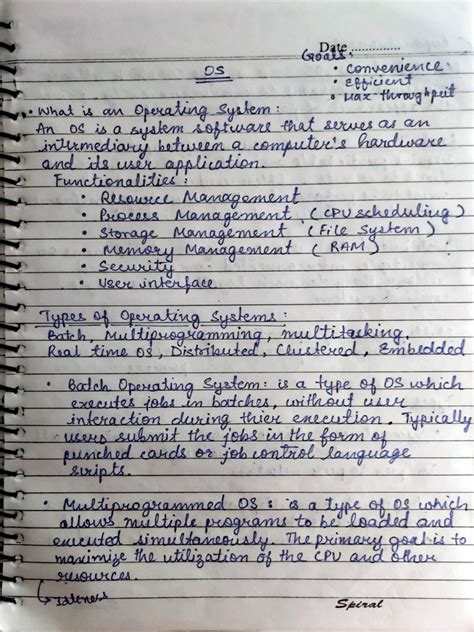 Date ..............
Goals:
• Convenience
• Efficient
• Max throughput
OS
• What is an Operating System:
An OS is a system software that serves as an
intermediary between a computer's hardware
and its user application.
Functionalities:
• Resource Management
• Process Management (CPU scheduling)
• Storage Management (File System)
• Memory Management (RAM)
• Security
• User interface
Types of Operating Systems:
Batch, Multiprogramming, multitasking,
Real time OS, Distributed, Clustered, Embedded
• Batch Operating System: is a type of OS which
executes jobs in batches, without user
interaction during thier execution. Typically
users submit the jobs in the form of
punched cards or job control language
scripts.
• Multiprogrammed OS: is a type of OS which
allows multiple programs to be loaded and
executed simultaneously. The primary goal is to
maximize the utilization of the CPU and other
resources.
Idleness
Spiral